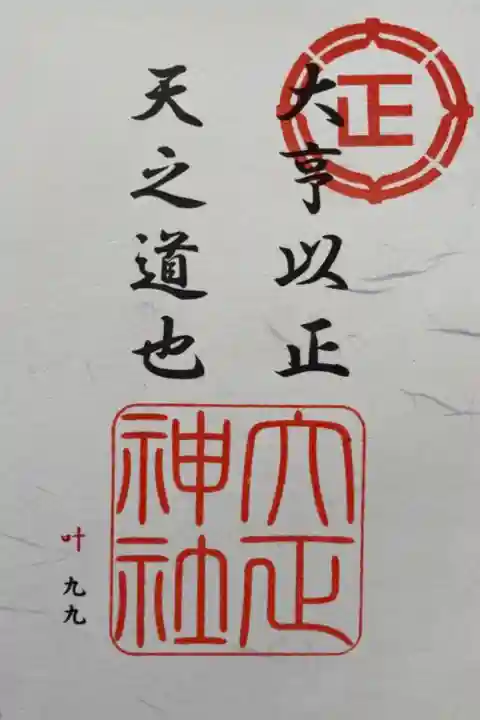 正
大亨以正
天之道也
大正
神社
叶
九九